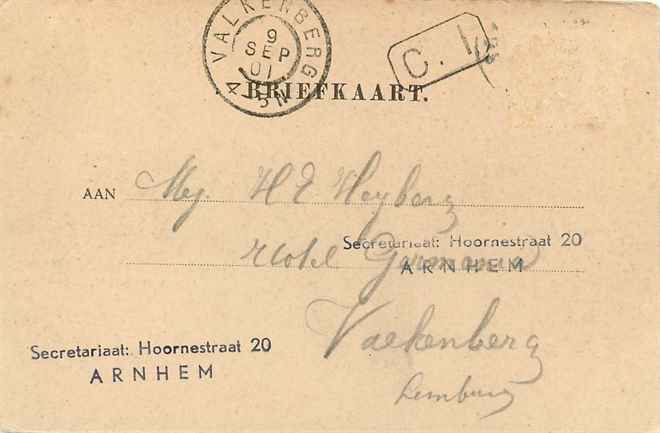 VALKENBERG
9
SEP
01
4-5N
C. I
BRIEFKAART.
AAN Mej. H E Heyberg
Secretariaat: Hoornestraat 20
Hotel Germania
ARNHEM
Valkenberg
Secretariaat: Hoornestraat 20
ARNHEM
Limburg